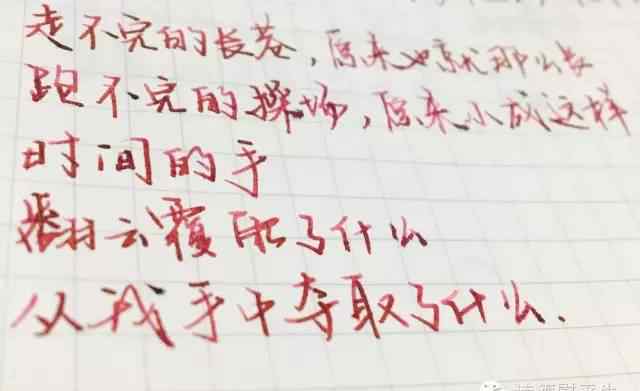 走不完的长巷，原来也就那么长
跑不完的操场，原来小成这样
时间的手
翻云覆雨了什么
从我手中夺取了什么.